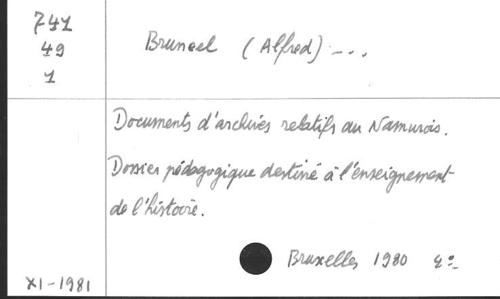 741
49
1
Bruneel (Alfred) ...
Documents d'archives relatifs au Namurois.
Dossier pédagogique destiné à l'enseignement
de l'histoire.
Bruxelles 1980 4°
XI-1981